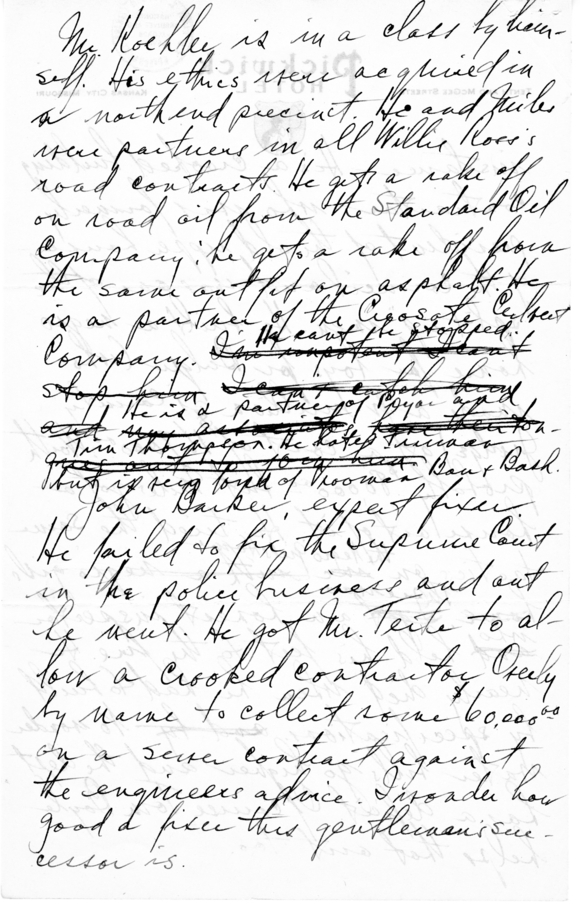 Mr. Koehler is in a class by him-
self. His ethics were acquired in
a north end precinct. He and Miles
were partners in all Willie Ross's
road contracts. He gets a rake off
on road oil from the Standard Oil
Company; he gets a rake off from
the same outfit on asphalt. He
is a partner of the Creosote Culvert
He can't be stopped.
Company. I'm impotent I can't
stop him I can't catch him
He is a partner of Pryor and
and my
Tim Thompson. He hates Truman
but is very fond of Vrooman Barr & Bash.
John Barker, expert fixer.
He failed to fix the Supreme Court
in the police business and out
he went. He got Mr. Terte to al-
low a crooked contractor Overly
by name to collect some $60,000.00
on a sewer contract against
the engineers advice. I wonder how
good a fixer this gentleman's suc-
cessor is.